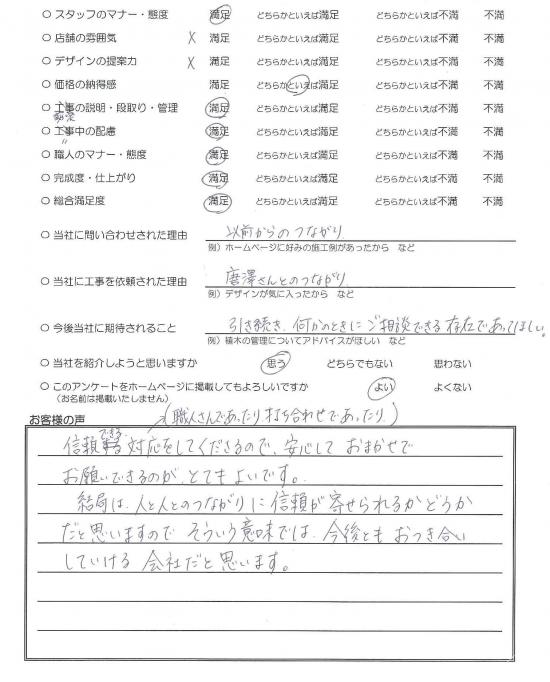 ○ スタッフのマナー・態度 満足 どちらかといえば満足 どちらかといえば不満 不満
○ 店舗の雰囲気 × 満足 どちらかといえば満足 どちらかといえば不満 不満
○ デザインの提案力 × 満足 どちらかといえば満足 どちらかといえば不満 不満
○ 価格の納得感 満足 どちらかといえば満足 どちらかといえば不満 不満
○ 工事の説明・段取り・管理 満足 どちらかといえば満足 どちらかといえば不満 不満
○ 工事中の配慮 満足 どちらかといえば満足 どちらかといえば不満 不満
〃
○ 職人のマナー・態度 満足 どちらかといえば満足 どちらかといえば不満 不満
○ 完成度・仕上がり 満足 どちらかといえば満足 どちらかといえば不満 不満
○ 総合満足度 満足 どちらかといえば満足 どちらかといえば不満 不満
○ 当社に問い合わせされた理由 以前からのつながり
例）ホームページに好みの施工例があったから など
○ 当社に工事を依頼された理由 唐澤さんとのつながり
例）デザインが気に入ったから など
○ 今後当社に期待されること 引き続き、何かのときにご相談できる存在であってほしい。
例）植木の管理についてアドバイスがほしい など
○ 当社を紹介しようと思いますか 思う どちらでもない 思わない
○ このアンケートをホームページに掲載してもよろしいですか よい よくない
（お名前は掲載いたしません）
お客様の声 (職人さんであったり打ち合わせであったり)
信頼できる対応をしてくださるので、安心しておまかせで
お願いできるのが、とてもよいです。
結局は、人と人とのつながりに信頼が寄せられるかどうか
だと思いますので そういう意味では、今後とも おつき合い
していける 会社だと思います。